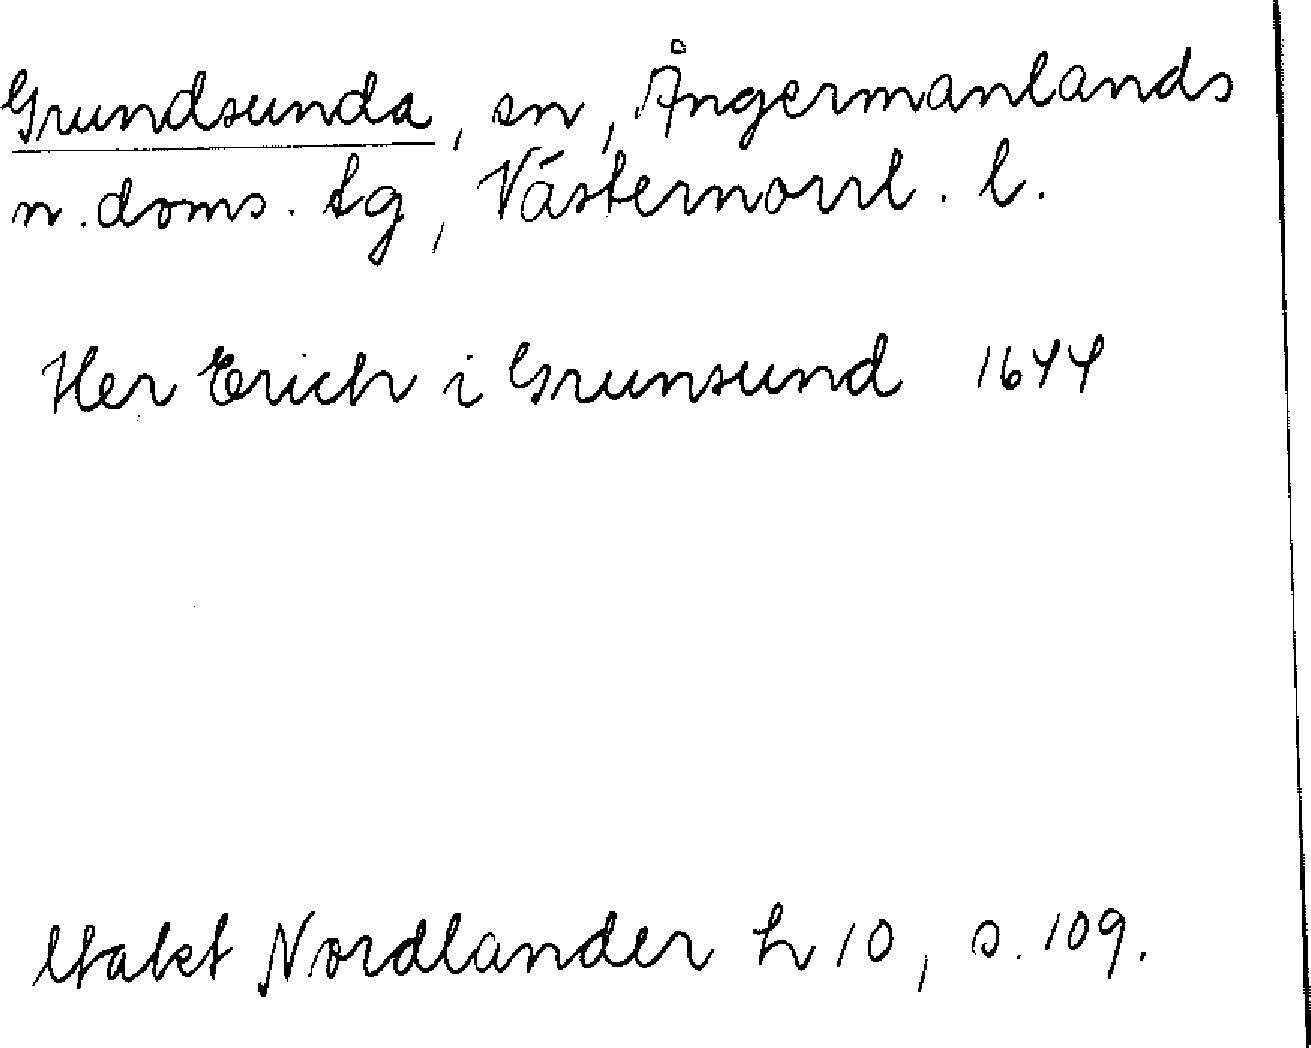 Grundsunda, sn, Ångermanlands
n. doms. tg, Västernorrl. l.
Her Erich i Grunsund 1644
Utakt Nordlander h 10, s. 109.